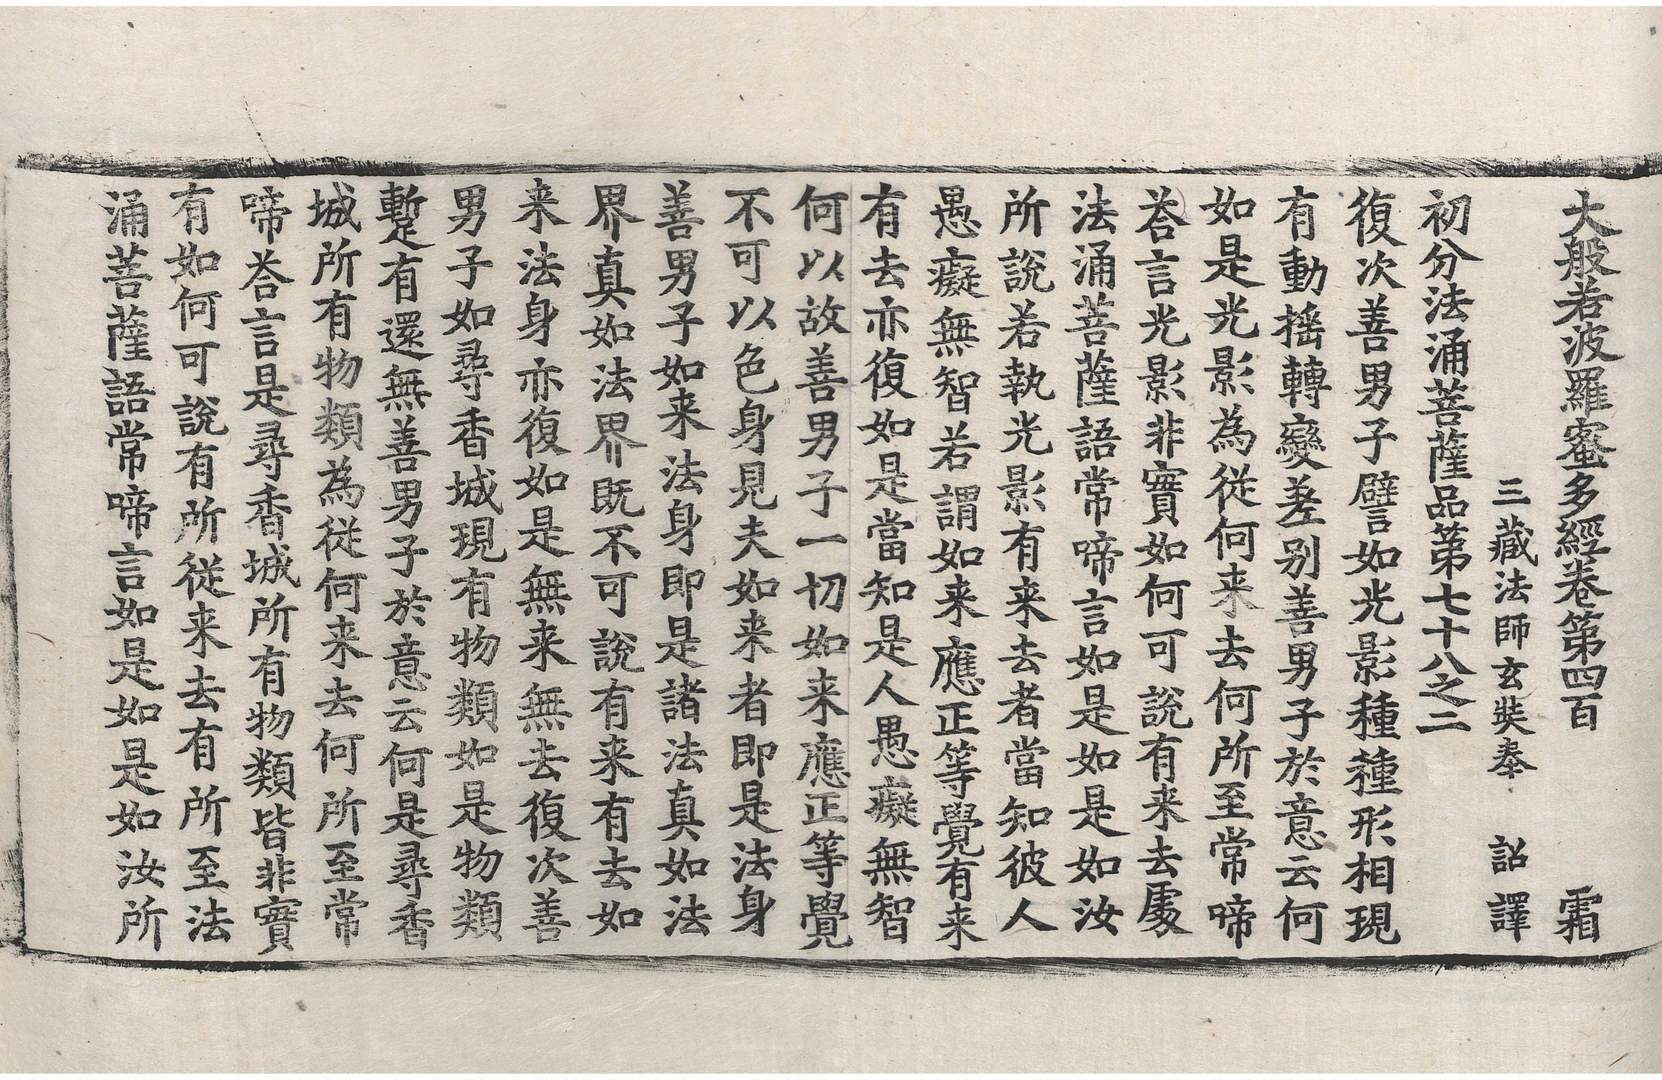 大般若波羅蜜多經卷第四百　霜
三藏法師玄奘奉　詔譯
初分法涌菩薩品第七十八之二
復次善男子譬如光影種種形相現
有動搖轉變差別善男子於意云何
如是光影為從何来去何所至常啼
荅言光影非實如何可說有来去處
法涌菩薩語常啼言如是如是如汝
所說若執光影有来去者當知彼人
愚癡無智若謂如来應正等覺有来
有去亦復如是當知是人愚癡無智
何以故善男子一切如来應正等覺
不可以色身見夫如来者即是法身
善男子如来法身即是諸法真如法
界真如法界既不可說有来有去如
来法身亦復如是無来無去復次善
男子如尋香城現有物類如是物類
蹔有還無善男子於意云何是尋香
城所有物類為從何来去何所至常
啼荅言是尋香城所有物類皆非實
有如何可說有所從来去有所至法
涌菩薩語常啼言如是如是如汝所